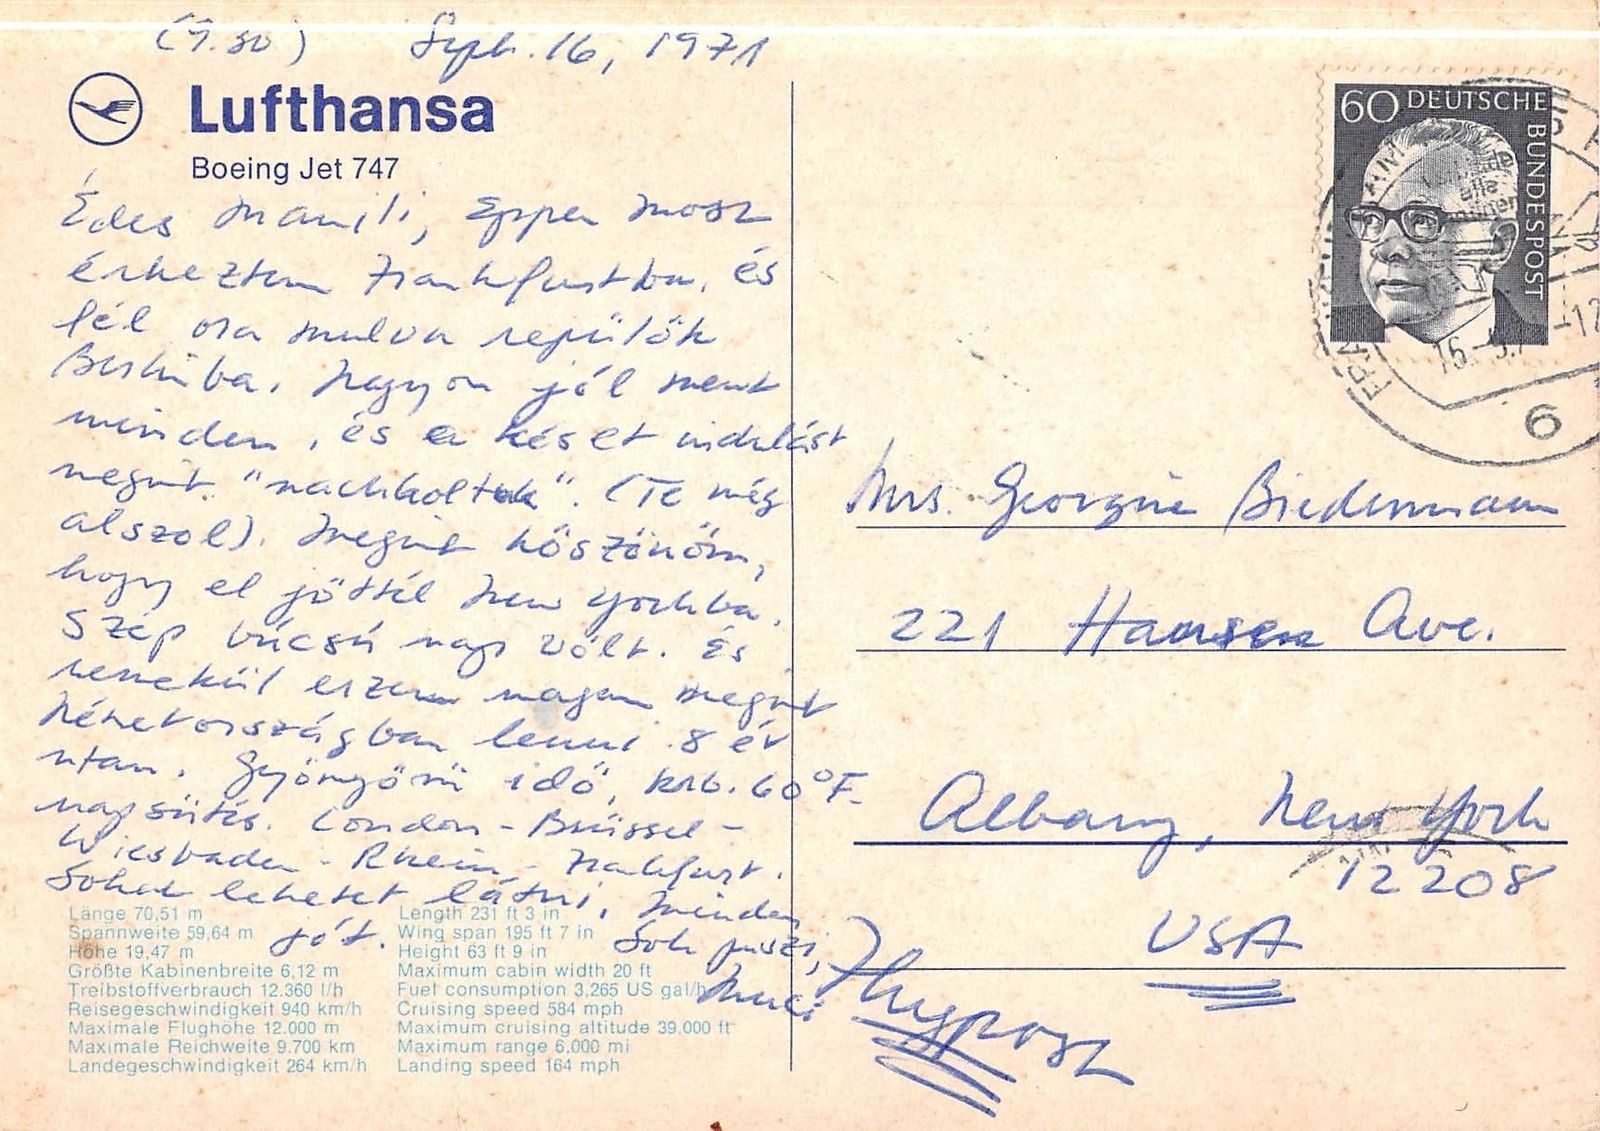 (9.30) Sept. 16, 1971
Lufthansa
Boeing Jet 747
Édes Mamili, Eppen most
érkeztem Frankfurtba, és
fél ora mulva repülök
Berlinba. Nagyon jól ment
minden, és a késet indulást
megint "nachholtuk". (Te még
alszol). Megint köszönöm,
hogy el jöttél New Yorkba.
Szép búcsú nap volt. És
remekül erzem magam megint
Németországban lenni 8 év
utan. Gyönyörü idő, krb. 60°F.
napsütés. London - Brüssel -
Wiesbaden - Rhein - Frankfurt.
Sokat lehetet látni. Minden
jót. Sok puszi,
Muci
Länge 70,51 m
Spannweite 59,64 m
Höhe 19,47 m
Größte Kabinenbreite 6,12 m
Treibstoffverbrauch 12.360 l/h
Reisegeschwindigkeit 940 km/h
Maximale Flughöhe 12.000 m
Maximale Reichweite 9.700 km
Landegeschwindigkeit 264 km/h
Length 231 ft 3 in
Wing span 195 ft 7 in
Height 63 ft 9 in
Maximum cabin width 20 ft
Fuel consumption 3,265 US gal/h
Cruising speed 584 mph
Maximum cruising altitude 39.000 ft
Maximum range 6,000 mi
Landing speed 164 mph
60 DEUTSCHE
BUNDESPOST
6
Mrs. Georgine Biedermann
221 Hansen Ave.
Albany, New York
12208
USA
Flugpost